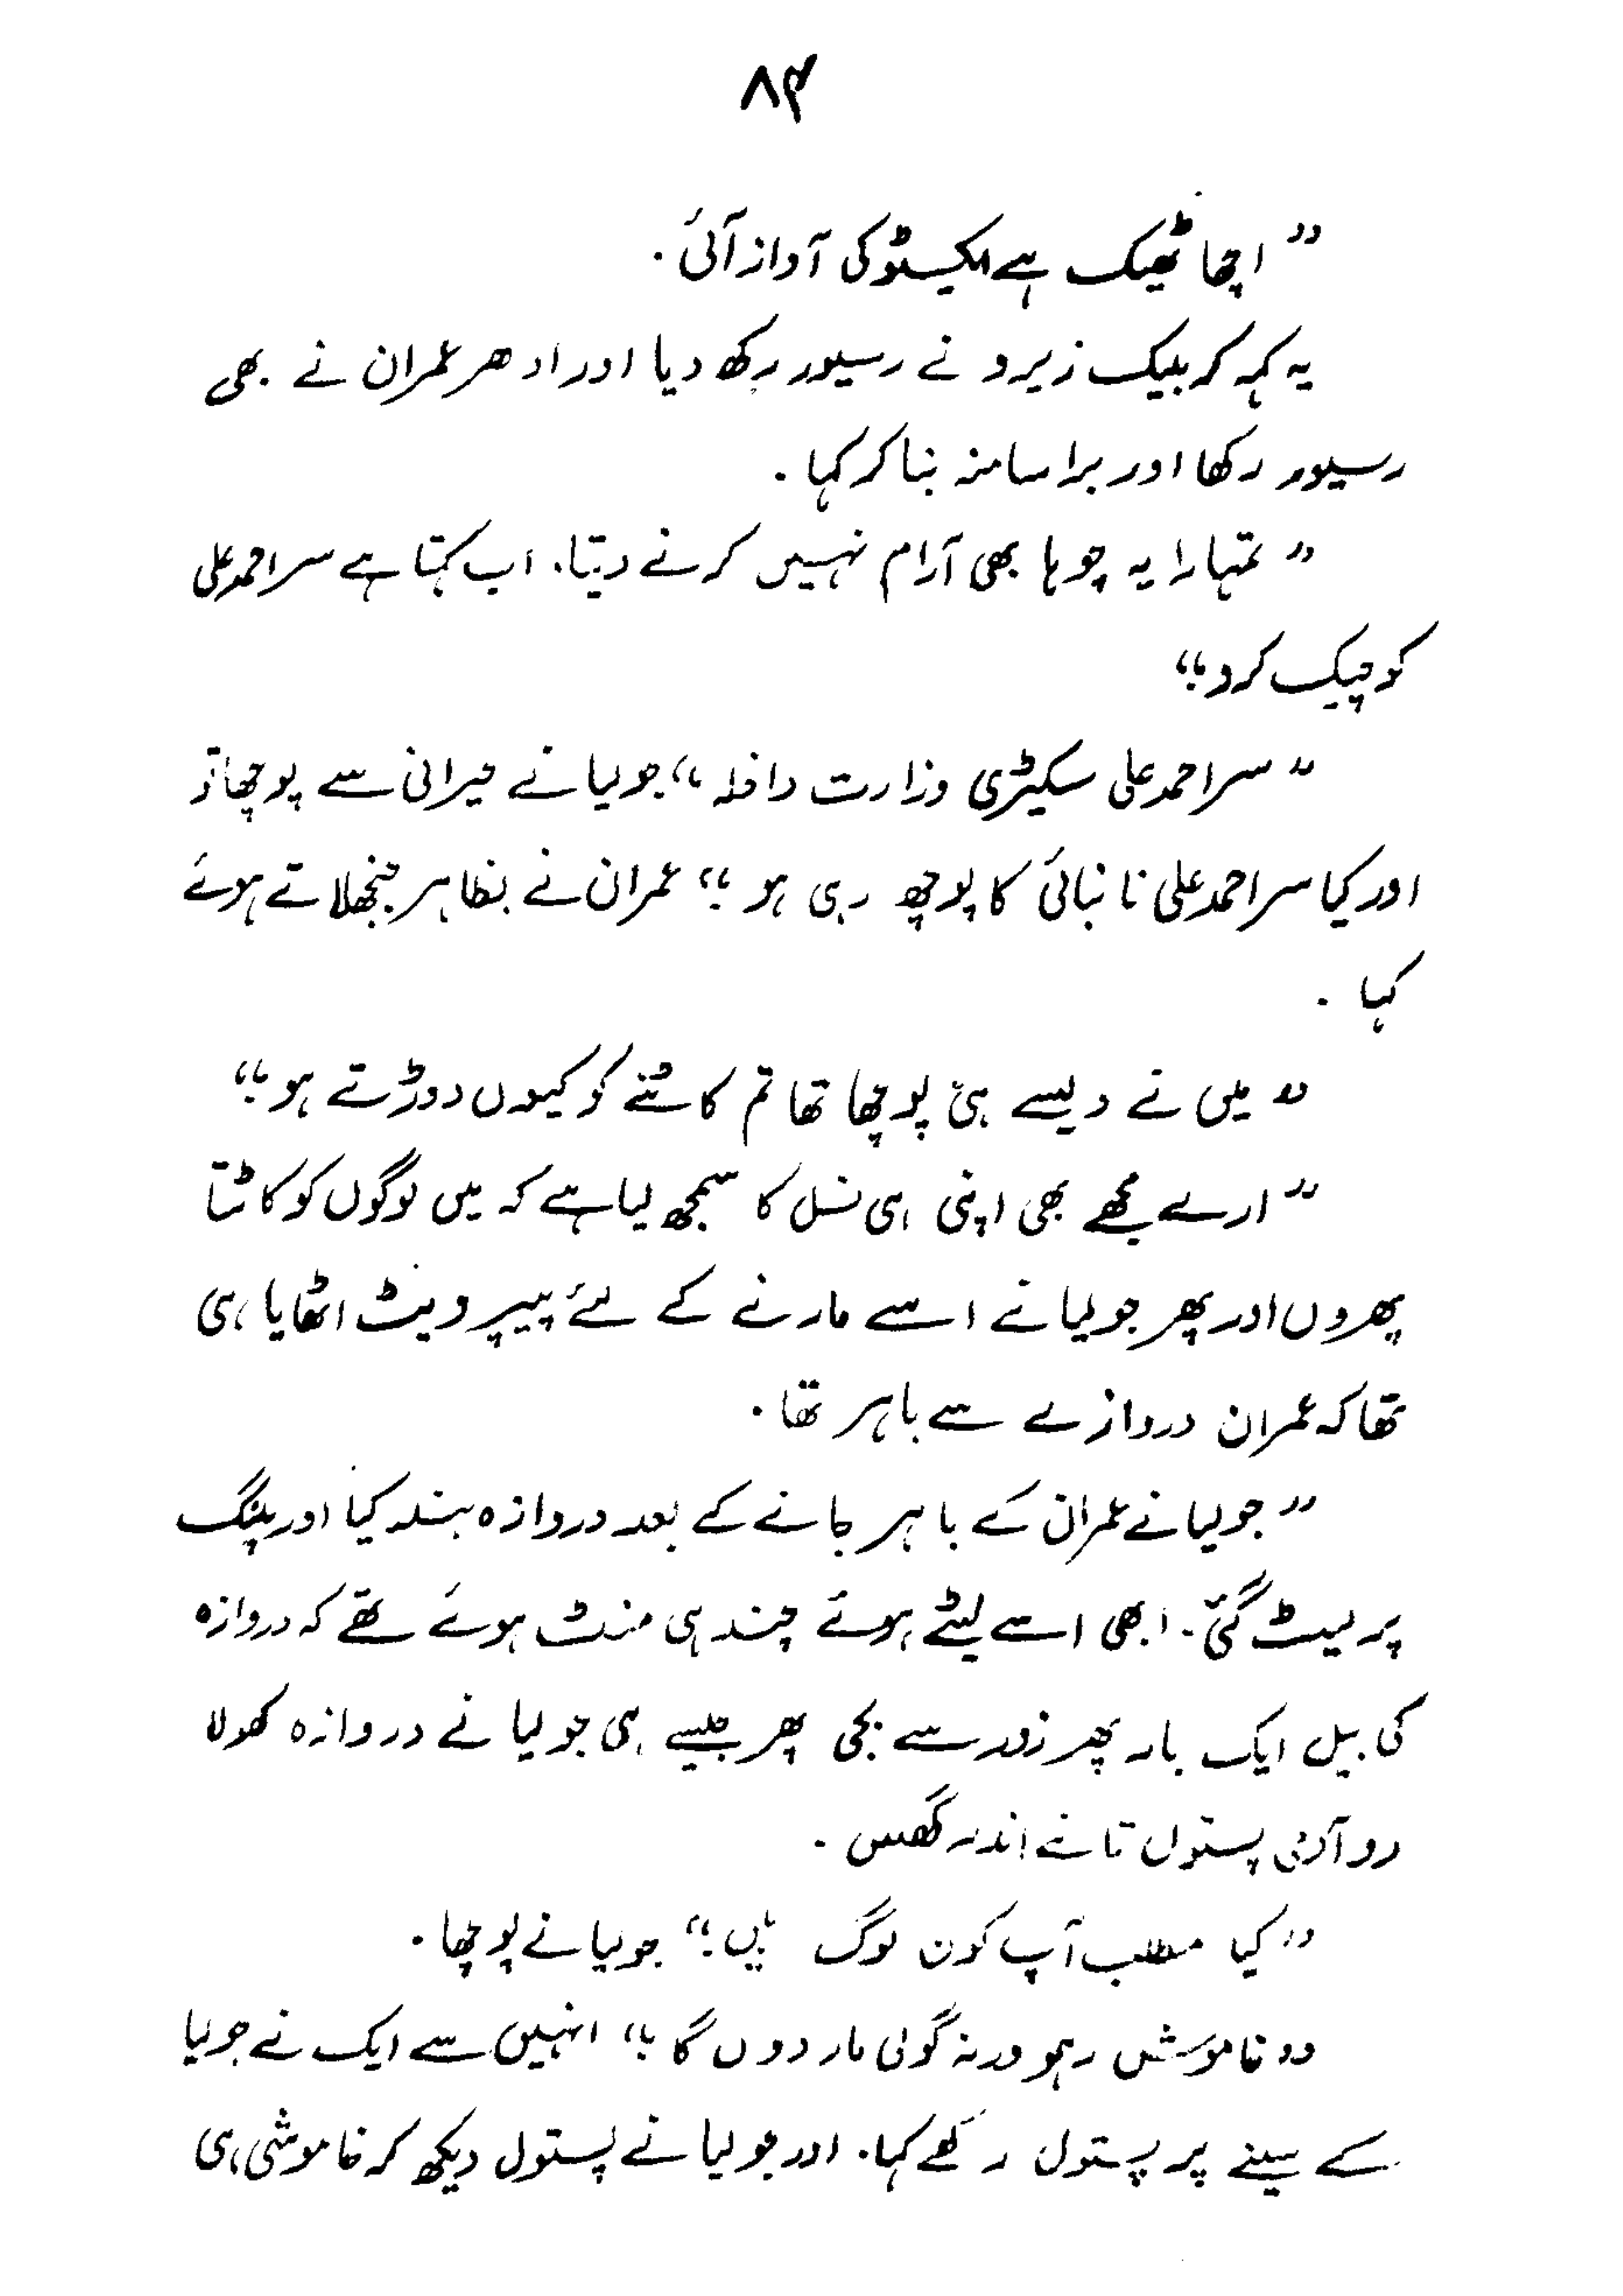 ۸۴
” اچھا ٹھیک ہے ایکسٹو کی آواز آئی .
یہ کہہ کر بلیک زیرو نے رسیور رکھ دیا اور ادھر عمران نے بھی
رسیور رکھا اور برا سا منہ بنا کر کہا .
” تمہارا یہ چوہا بھی آرام نہیں کرنے دیتا. اب کہتا ہے سر احمد علی
کو چیک کرو ؛“
” سر احمد علی سکیٹری وزارت داخلہ “ جولیا نے حیرانی سے پوچھا تو
اور کیا سر احمد علی نانبائی کا پوچھ رہی ہو ؛“ عمران نے بظاہر جھنجھلاتے ہوئے
کہا .
” میں نے ویسے ہی پوچھا تھا تم کاٹنے کو کیوں دوڑتے ہو ؛“
” ارے مجھے بھی اپنی ہی نسل کا سمجھ لیا ہے کہ میں لوگوں کو کاٹتا
پھروں اور پھر جولیا نے اسے مارنے کے لئے پیپر ویٹ اٹھایا ہی
تھا کہ عمران دروازے سے باہر تھا .
” جولیا نے عمران کے باہر جانے کے بعد دروازہ بند کیا اور پلنگ
پر لیٹ گئی۔ ابھی اسے لیٹے ہوئے چند ہی منٹ ہوئے تھے کہ دروازہ
کی بیل ایک بار پھر زور سے بجی پھر جیسے ہی جولیا نے دروازہ کھولا
دو آدمی پستول تانے اندر گھس .
” کیا مطلب آپ کون لوگ ہیں ؛“ جولیا نے پوچھا .
” خاموش رہو ورنہ گولی مار دوں گا ؛“ انہیں سے ایک نے جولیا
کے سینے پر پستول رکھے کہا. اور جولیا نے پستول دیکھ کر خاموشی ہی